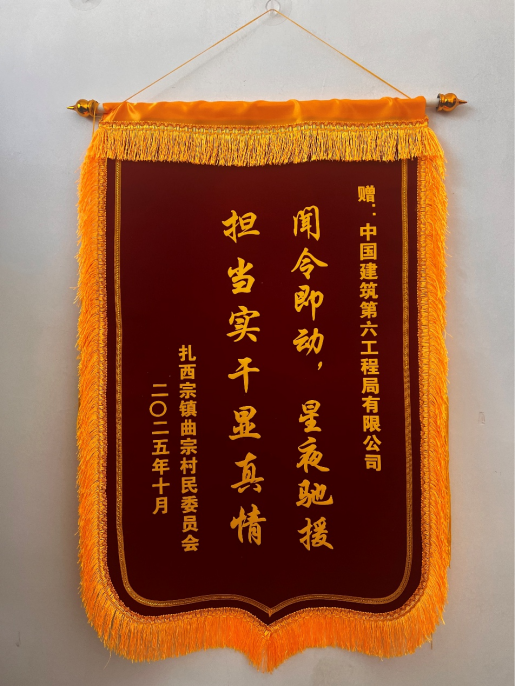 赠：中国建筑第六工程局有限公司
闻令即动，星夜驰援
担当实干显真情
扎西宗镇曲宗村民委员会
二〇二五年十月